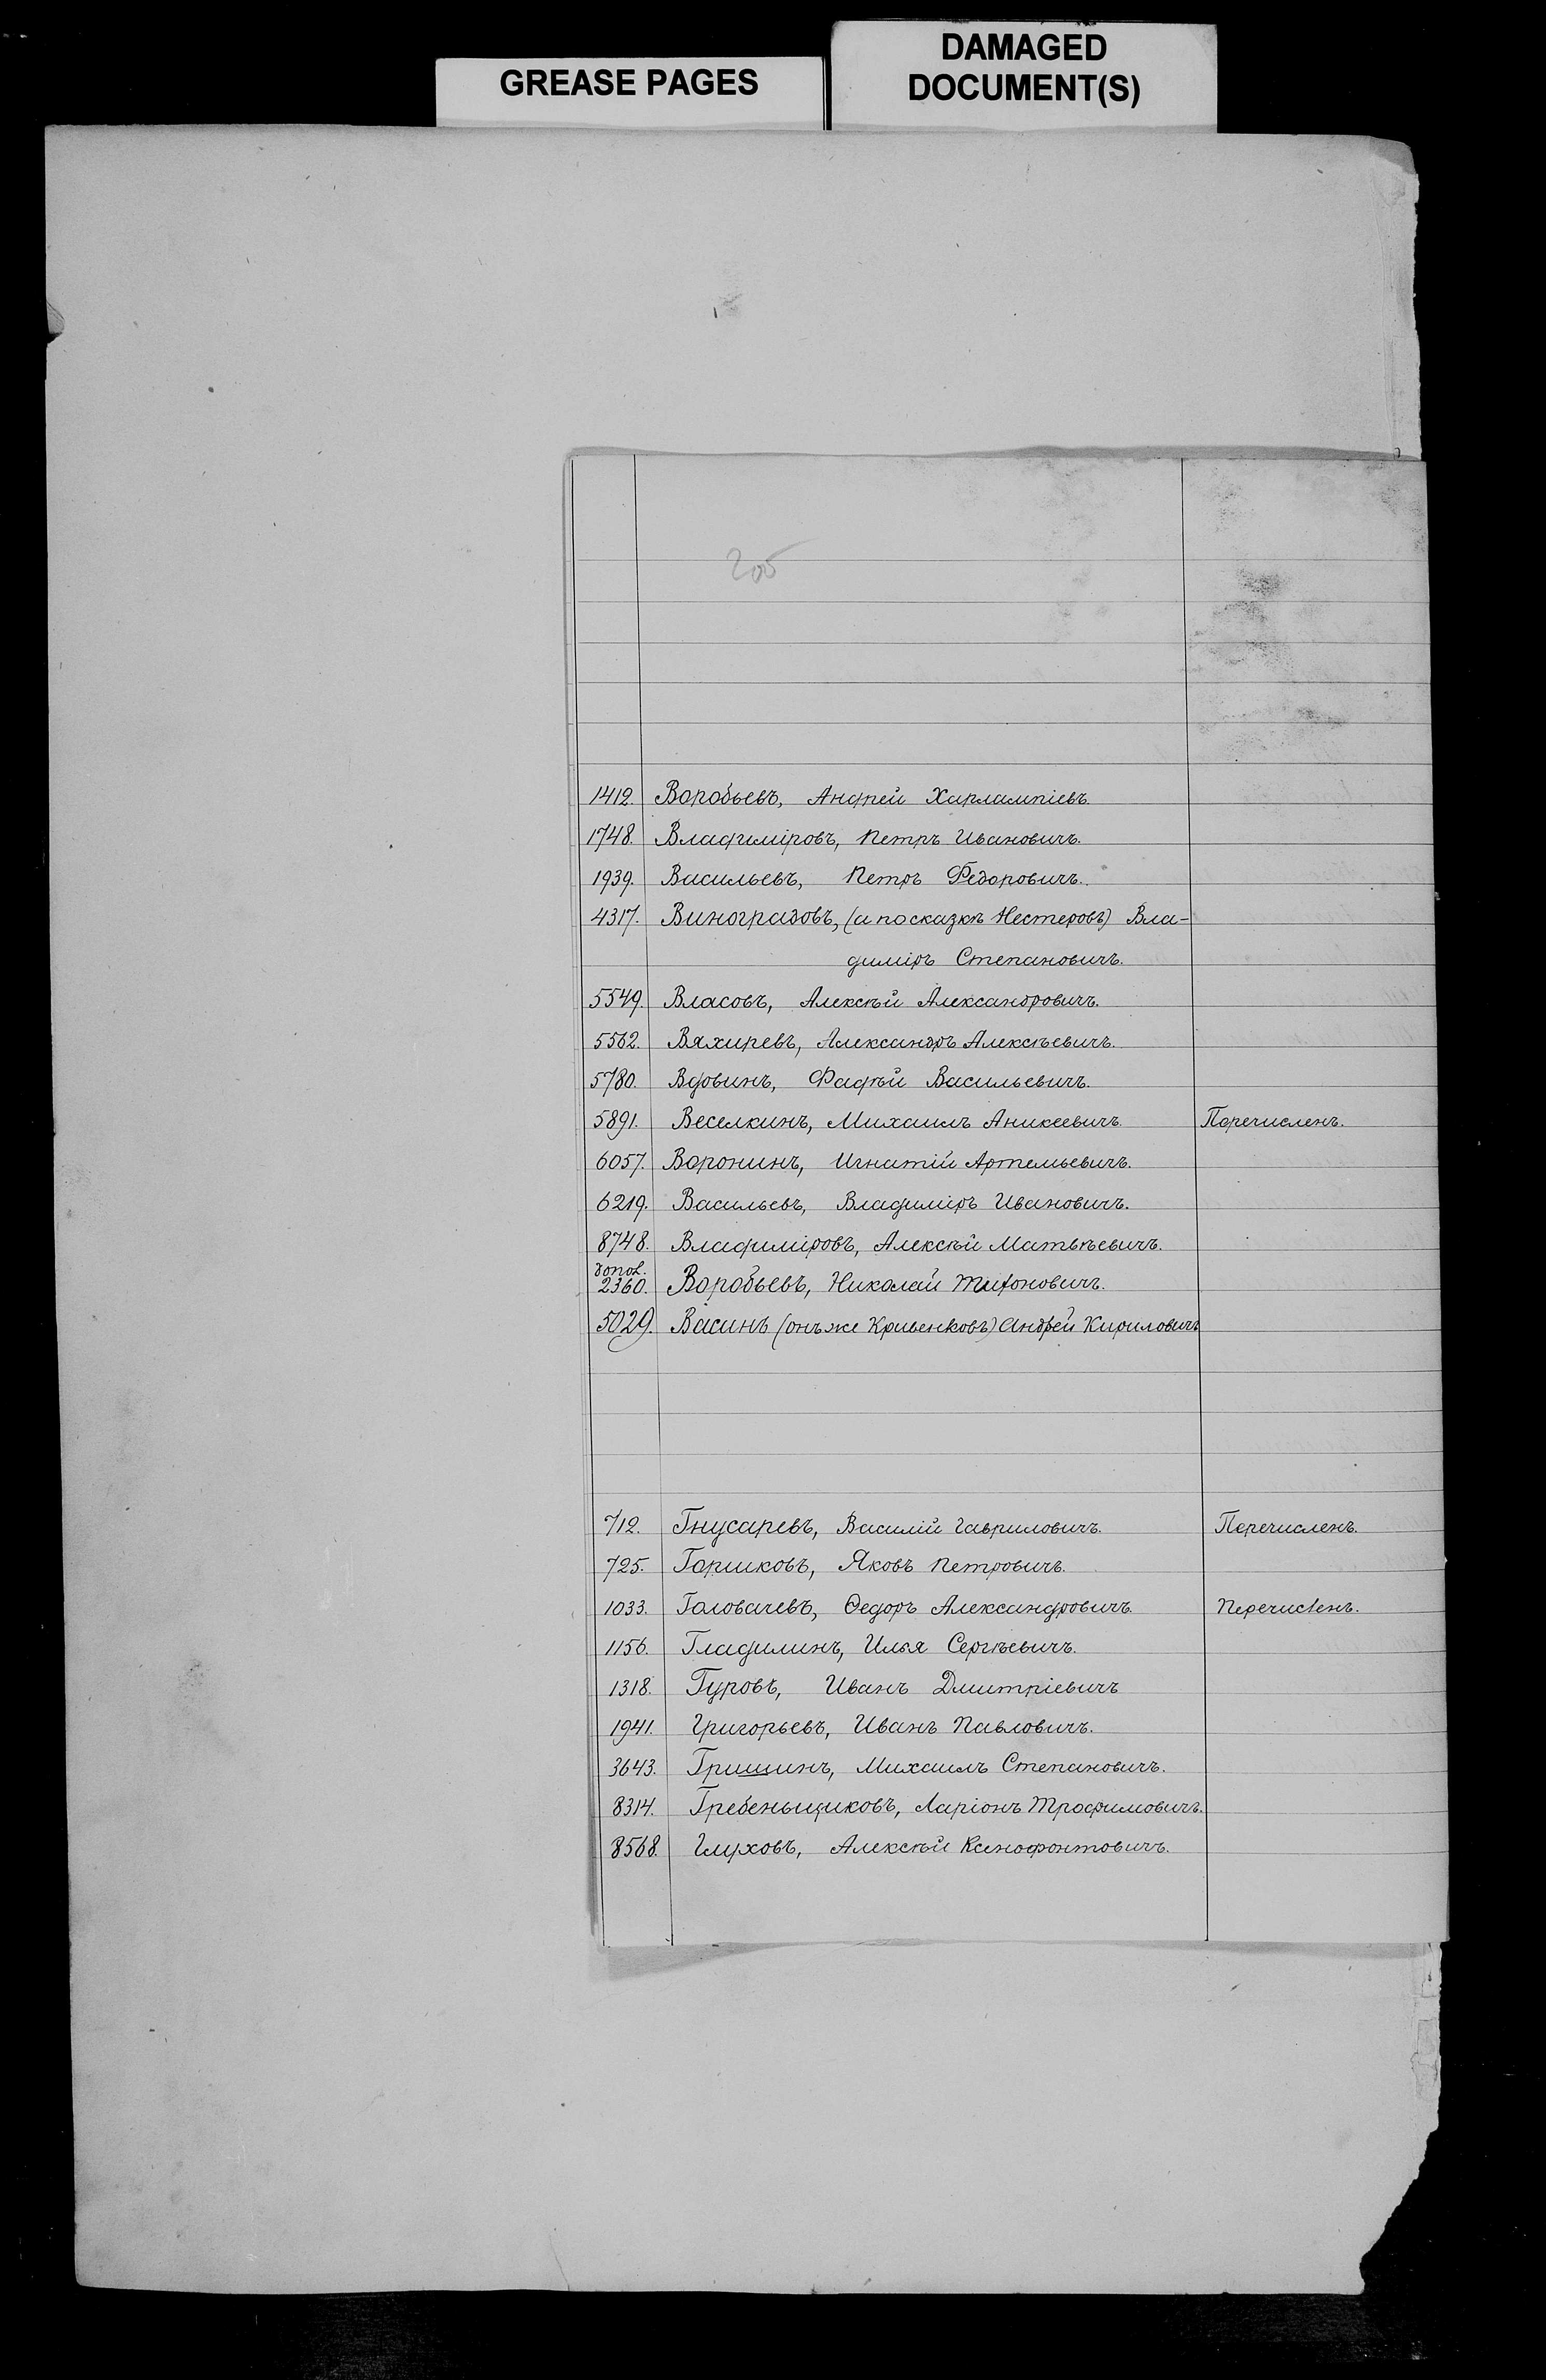 GREASE PAGES
DAMAGED
DOCUMENT(S)
205
1412. Воробьевъ, Андрей Харлампіевъ.
1748. Владиміровъ, Петръ Ивановичъ.
1939. Васильевъ, Петръ Федоровичъ.
4317. Виноградовъ, (а по сказкѣ Нестеровъ) Вла-
диміръ Степановичъ.
5549. Власовъ, Алексѣй Александровичъ.
5562. Вяхиревъ, Александръ Алексѣевичъ.
5780. Вдовинъ, Фадѣй Васильевичъ.
5891. Веселкинъ, Михаилъ Аникеевичъ. Перечисленъ.
6057. Воронинъ, Игнатій Артемьевичъ.
6219. Васильевъ, Владиміръ Ивановичъ.
8748. Владиміровъ, Алексѣй Матвѣевичъ.
допол.
2360. Воробьевъ, Николай Тихоновичъ.
5029. Васинъ (онъ же Кривенковъ) Андрей Кириловичъ
712. Гнусаревъ, Василій Гавриловичъ. Перечисленъ.
725. Горшковъ, Яковъ Петровичъ.
1033. Головачевъ, Ѳедоръ Александровичъ. Перечисленъ.
1156. Гладилинъ, Илья Сергѣевичъ.
1318. Гуровъ, Иванъ Дмитріевичъ
1941. Григорьевъ, Иванъ Павловичъ.
3643. Гришинъ, Михаилъ Степановичъ.
8314. Гребеньщиковъ, Ларіонъ Трофимовичъ.
8568. Глуховъ, Алексѣй Ксенофонтовичъ.